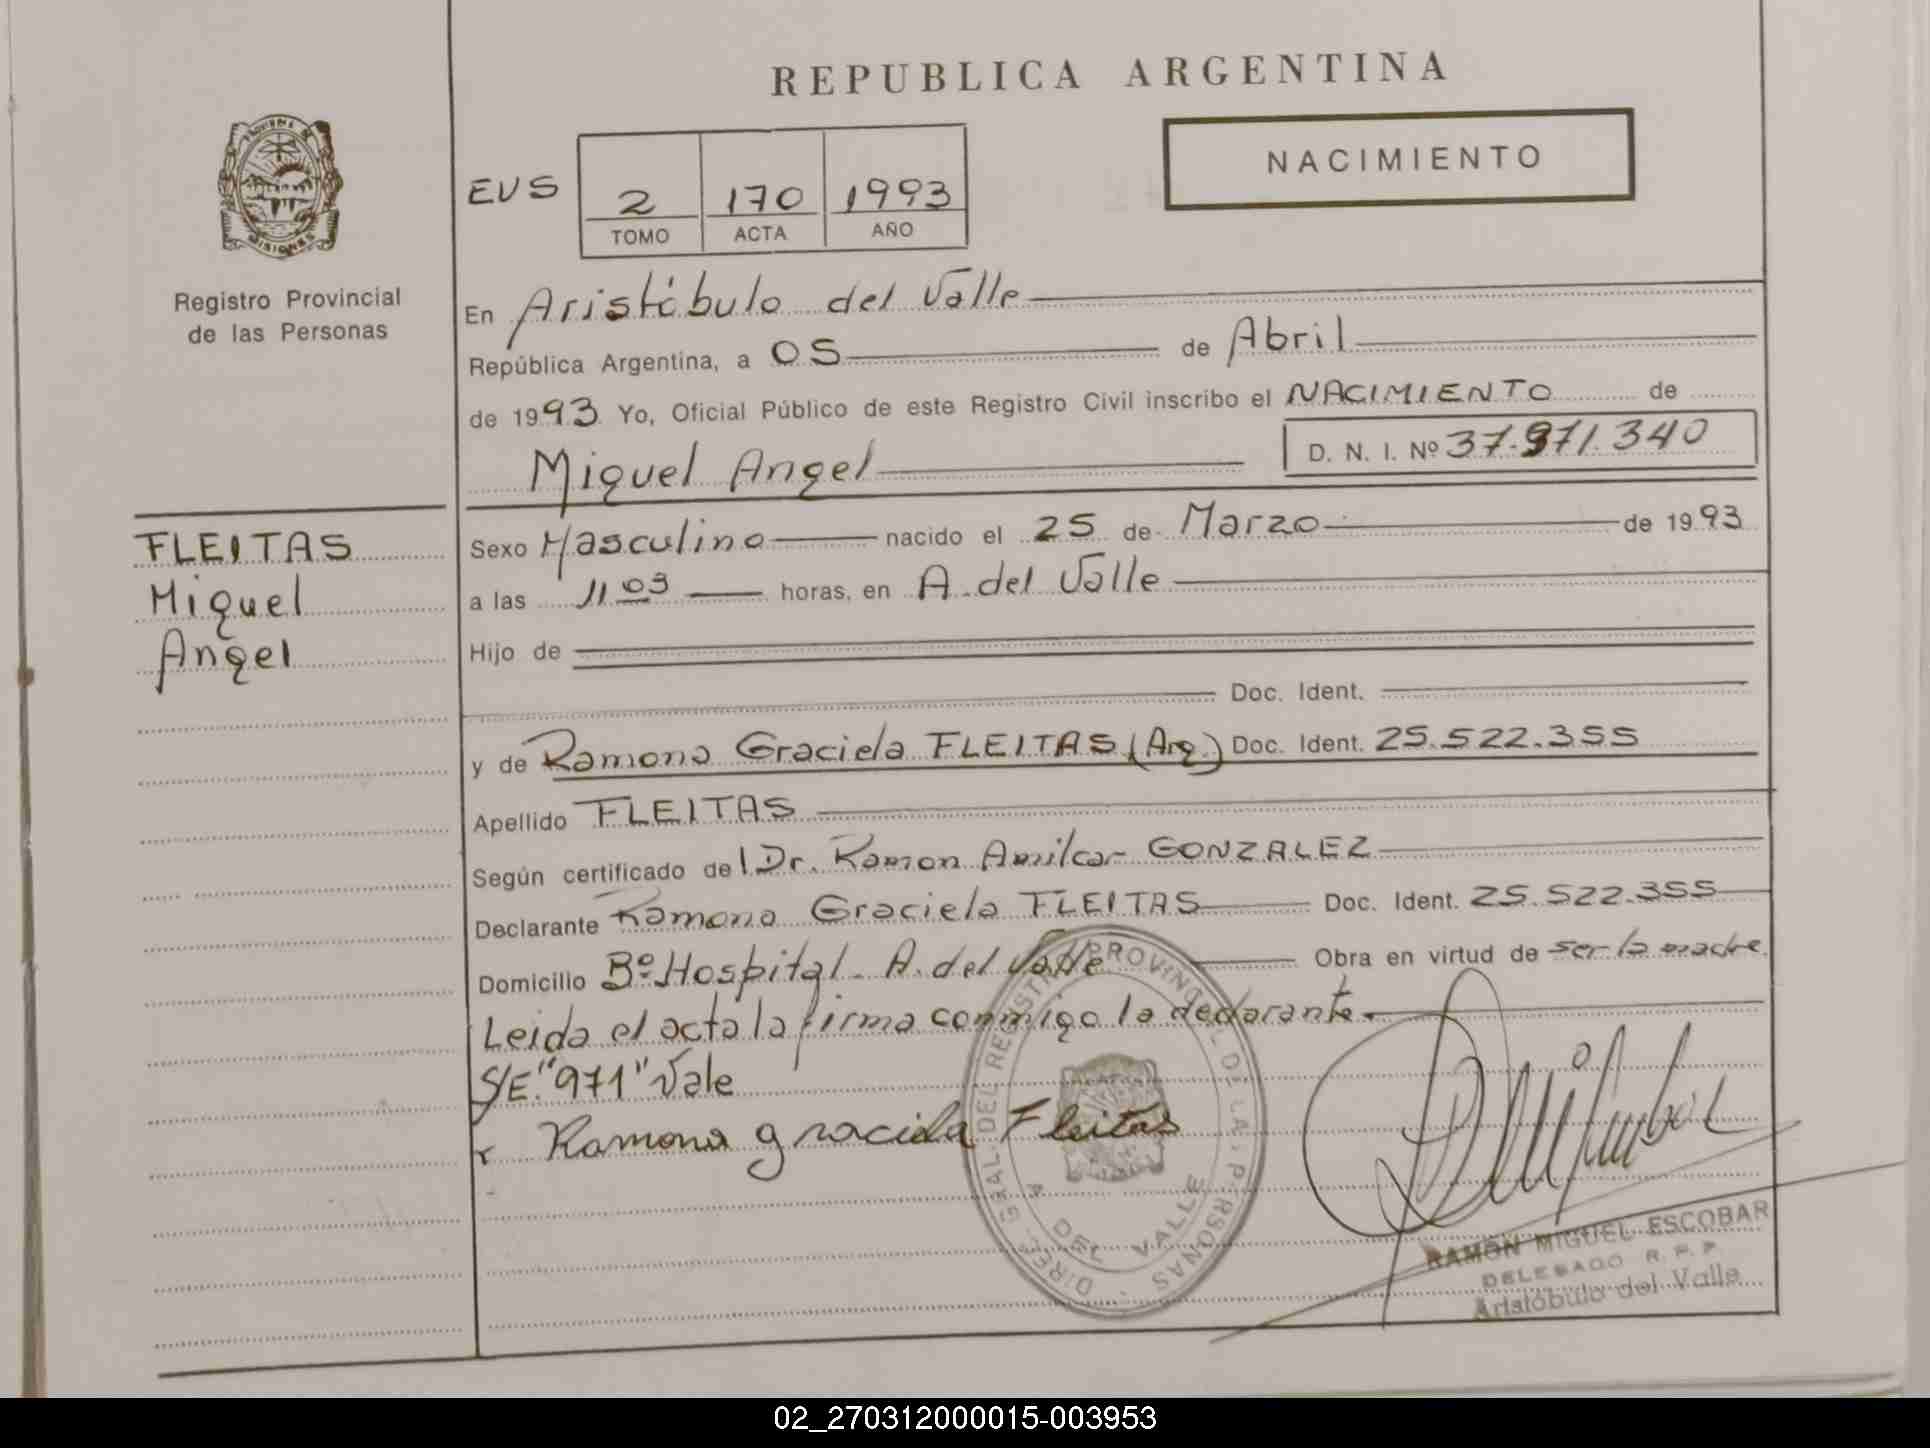 REPUBLICA ARGENTINA
NACIMIENTO
PROVINCIA DE
MISIONES
Registro Provincial
de las Personas
EVS
2 170 1993
TOMO ACTA AÑO
En Aristóbulo del Valle
República Argentina, a 05 de Abril
de 1993 Yo, Oficial Público de este Registro Civil inscribo el NACIMIENTO de
Miguel Angel D. N. I. Nº 37.971.340
FLEITAS
Miguel
Angel
Sexo Masculino nacido el 25 de Marzo de 1993
a las 11 03 horas, en A. del Valle
Hijo de
Doc. Ident.
y de Ramona Graciela FLEITAS (Arg.) Doc. Ident. 25.522.355
Apellido FLEITAS
Según certificado del Dr. Ramon Amilcar GONZALEZ
Declarante Ramona Graciela FLEITAS Doc. Ident. 25.522.355
Domicilio Bº Hospital - A. del Valle Obra en virtud de ser la madre.
Leida el acta la firma conmigo la declarante.
S/E. "971" Vale
Ramona graciela Fleitas
DIREC. GRAL. DEL REGISTRO PROVINCIAL DE LAS PERSONAS
A. DEL VALLE
RAMÓN MIGUEL ESCOBAR
DELEGADO R. P. P.
Aristóbulo del Valle
02_270312000015-003953